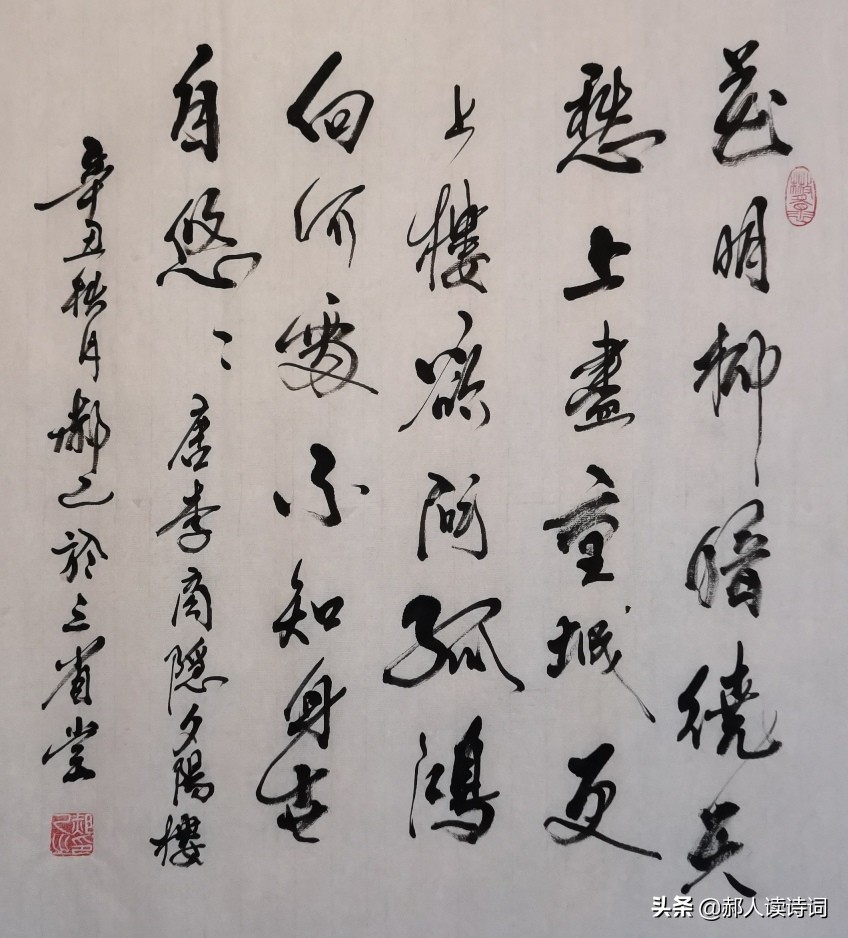 花明柳暗繞天
愁上盡重城更
上樓欲問孤鴻
向何處不知身世
自悠〻唐李商隱夕陽樓
辛丑秋月郝工於三省堂
头条 @郝人读诗词